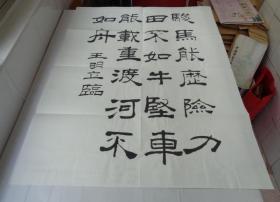 駿馬能歷險力
田不如牛堅車
能載重渡河不
如舟 王立臨